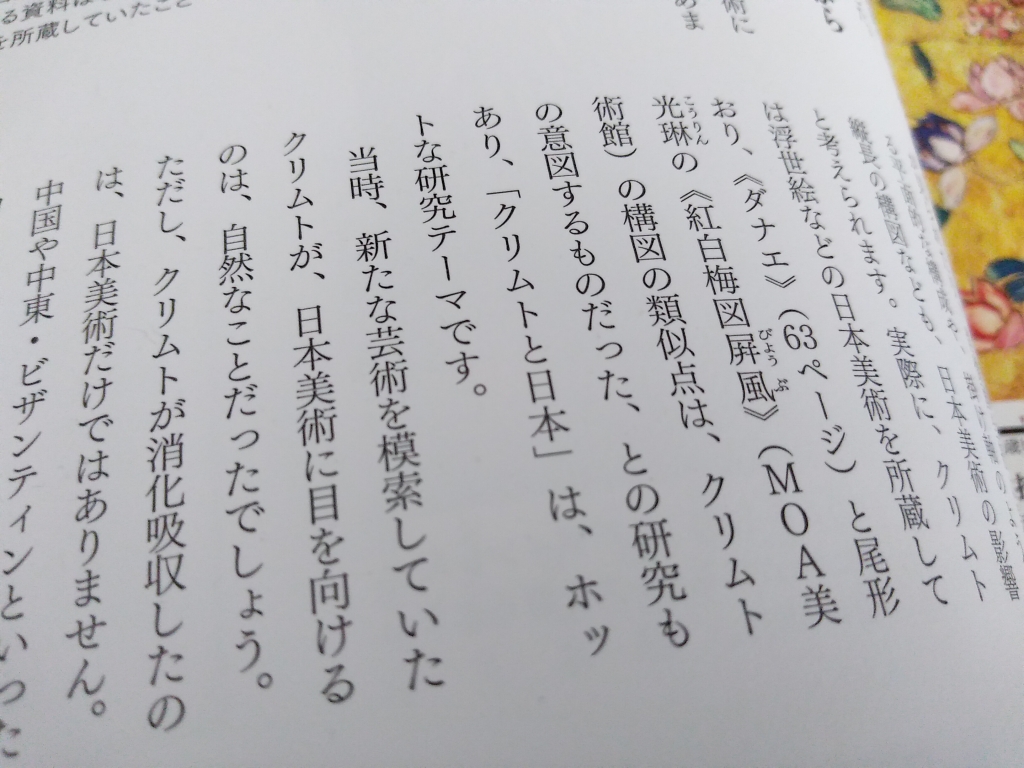 縦長の構図なども、日本美術の影響
と考えられます。実際に、クリムト
は浮世絵などの日本美術を所蔵して
おり、《ダナエ》（63ページ）と尾形
光琳の《紅白梅図屏風》（MOA美
術館）の構図の類似点は、クリムト
の意図するものだった、との研究も
あり、「クリムトと日本」は、ホッ
トな研究テーマです。
当時、新たな芸術を模索していた
クリムトが、日本美術に目を向ける
のは、自然なことだったでしょう。
ただし、クリムトが消化吸収したの
は、日本美術だけではありません。
中国や中東・ビザンティンといった
る資料は
を所蔵していたこと